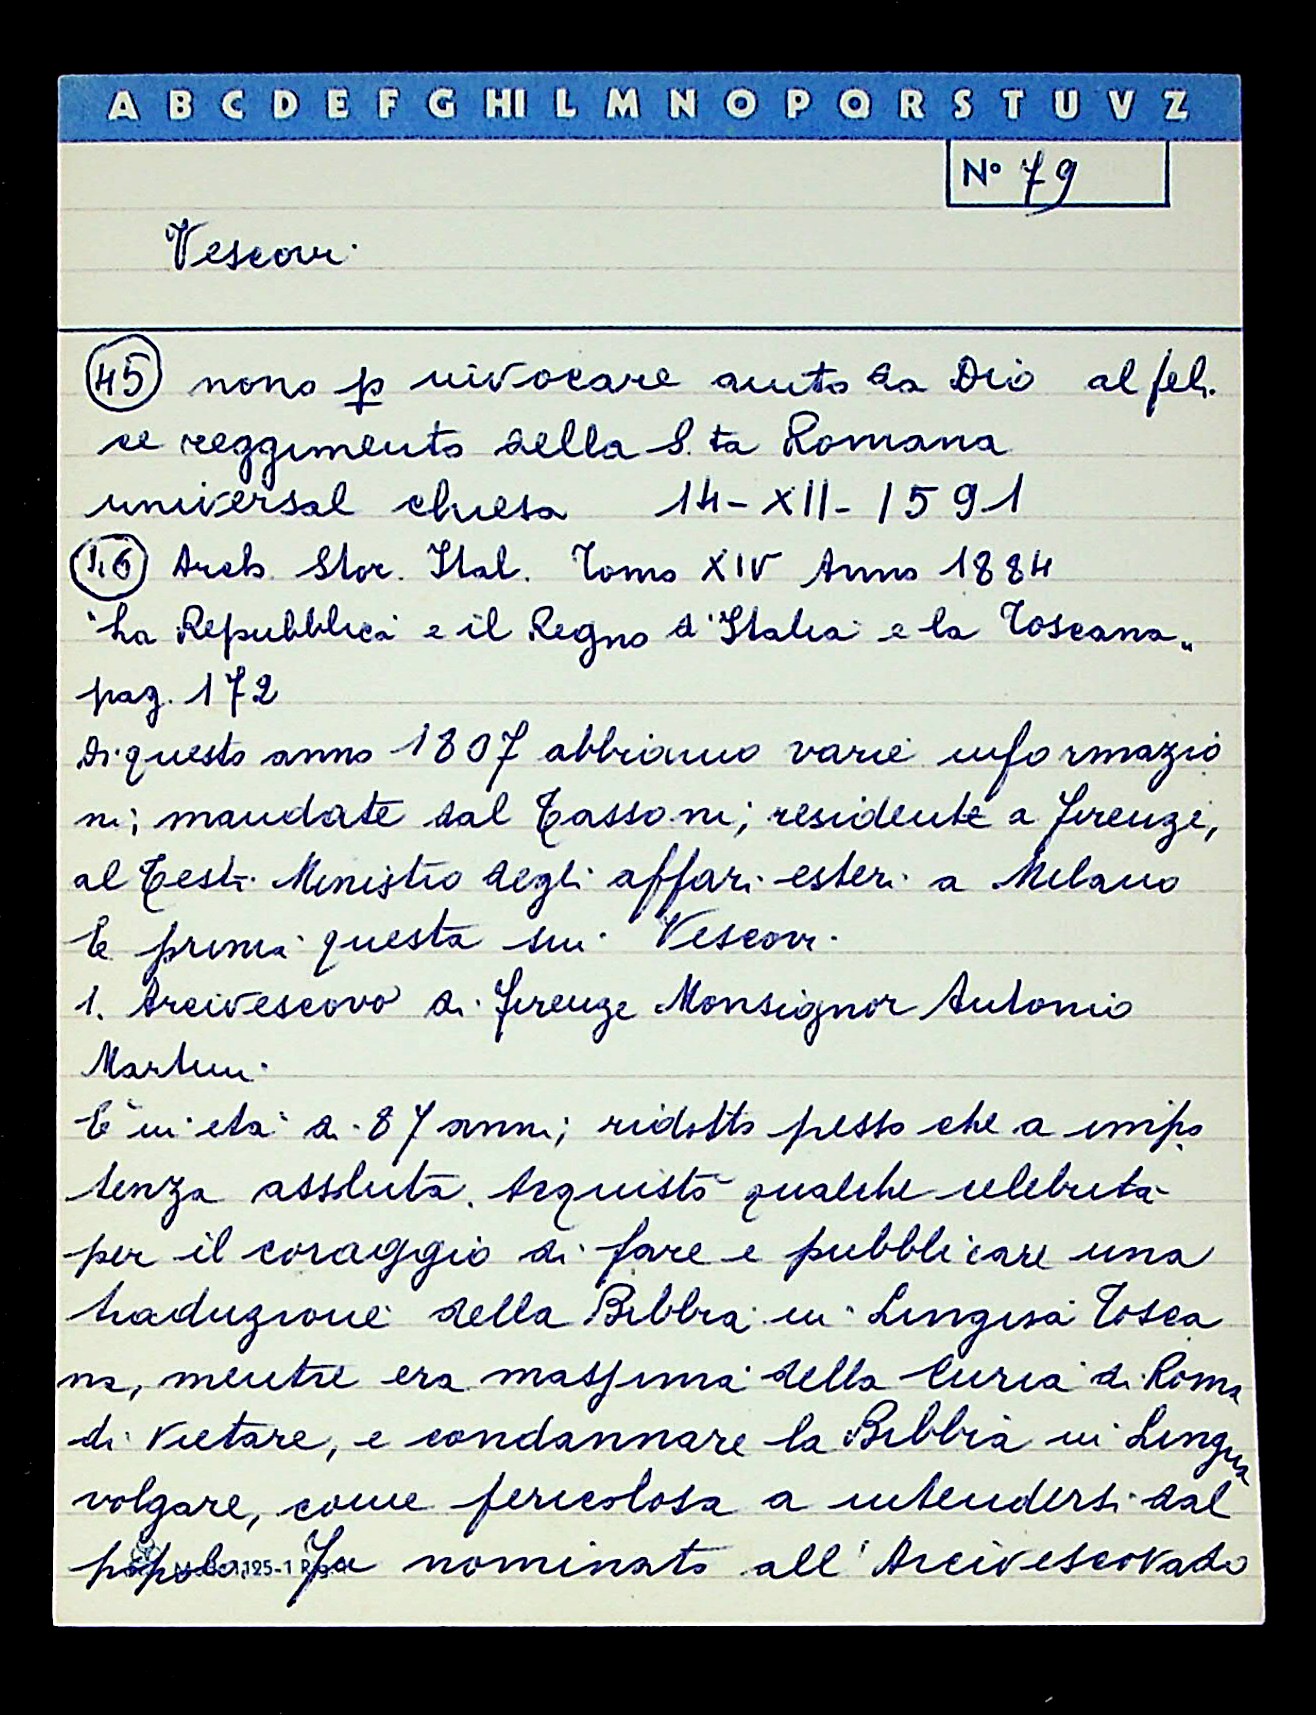 A B C D E F G HI L M N O P Q R S T U V Z
N° 79
Vescovi
(45) nono p invocare aiuto da Dio al feli
ce reggimento della S.ta Romana
universal chiesa 14-XII-1591
(46) Arch. Stor. Ital. Tomo XIV Anno 1884
"La Repubblica e il Regno d'Italia e la Toscana"
pag. 172
Di questo anno 1807 abbiamo varie informazio
ni; mandate dal Tassoni; residente a Firenze,
al Testi Ministro degli affari esteri a Milano
E prima questa sui Vescovi.
1. Arcivescovo di Firenze Monsignor Antonio
Martini.
E' in età di 87 anni; ridotto presso che a impo
tenza assoluta. Acquistò qualche celebrità
per il coraggio di fare e pubblicare una
traduzione della Bibbia in Lingua Tosca
na, mentre era massima della Curia di Roma
di vietare, e condannare la Bibbia in Lingua
volgare, come pericolosa a intendersi dal
popolo. Fu nominato all'Arcivescovado